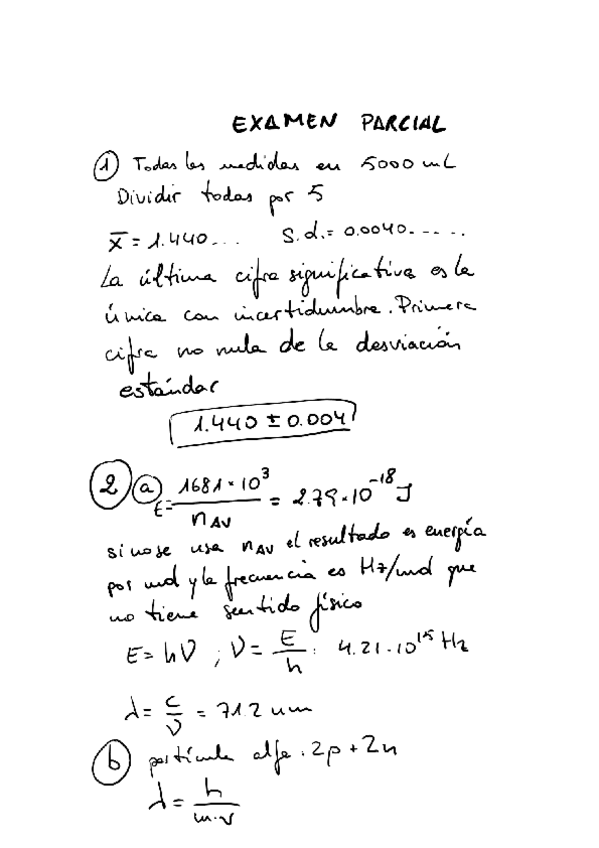 EXAMEN PARCIAL
① Todas las medidas en 5000 mL
Dividir todas por 5
x̄ = 1.440... S.d. = 0.0040......
La última cifra significativa es la
única con incertidumbre. Primera
cifra no nula de la desviación
estándar
1.440 ± 0.004
② ⓐ E = 1681·10³ / nAV = 2.79·10⁻¹⁸ J
si no se usa nAV el resultado es energía
por mol y la frecuencia es Hz/mol que
no tiene sentido físico
E = hν ; ν = E/h : 4.21·10¹⁵ Hz
λ = c/ν = 71.2 nm
ⓑ partícula alfa : 2p + 2n
λ = h/m·v